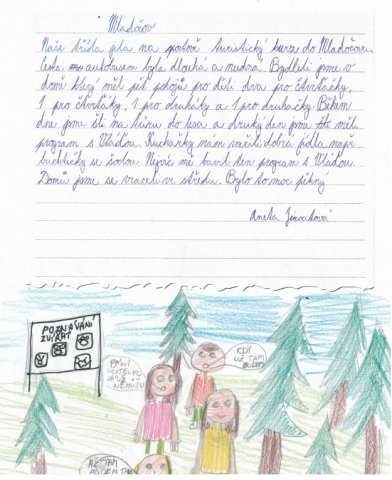 Mladočov
Naše třída jela na sportově turistický kurz do Mladočova.
Cesta autobusem byla dlouhá a nudná. Bydleli jsme v
domě který měl pět pokojů pro děti dva pro čtvrťačky,
1 pro čtvrťáky, 1 pro druháky a 1 pro druhačky. Během
dne jsme šli na túru do lesa a druhý den jsme měli
program s Vláďou. Kuchařky nám vařili dobrá jídla např.
buchtičky se šodou. Nejvíc mě bavil den program s Vláďou.
Domů jsme se vraceli ve středu. Bylo to moc pěkný
Aneta
POZNÁVÁNÍ
ZVÍŘAT
PANÍ
UČITELKO
JÁ UŽ
NEMŮŽU
KDY
UŽ TAM
BUDEM
AŽ TAM